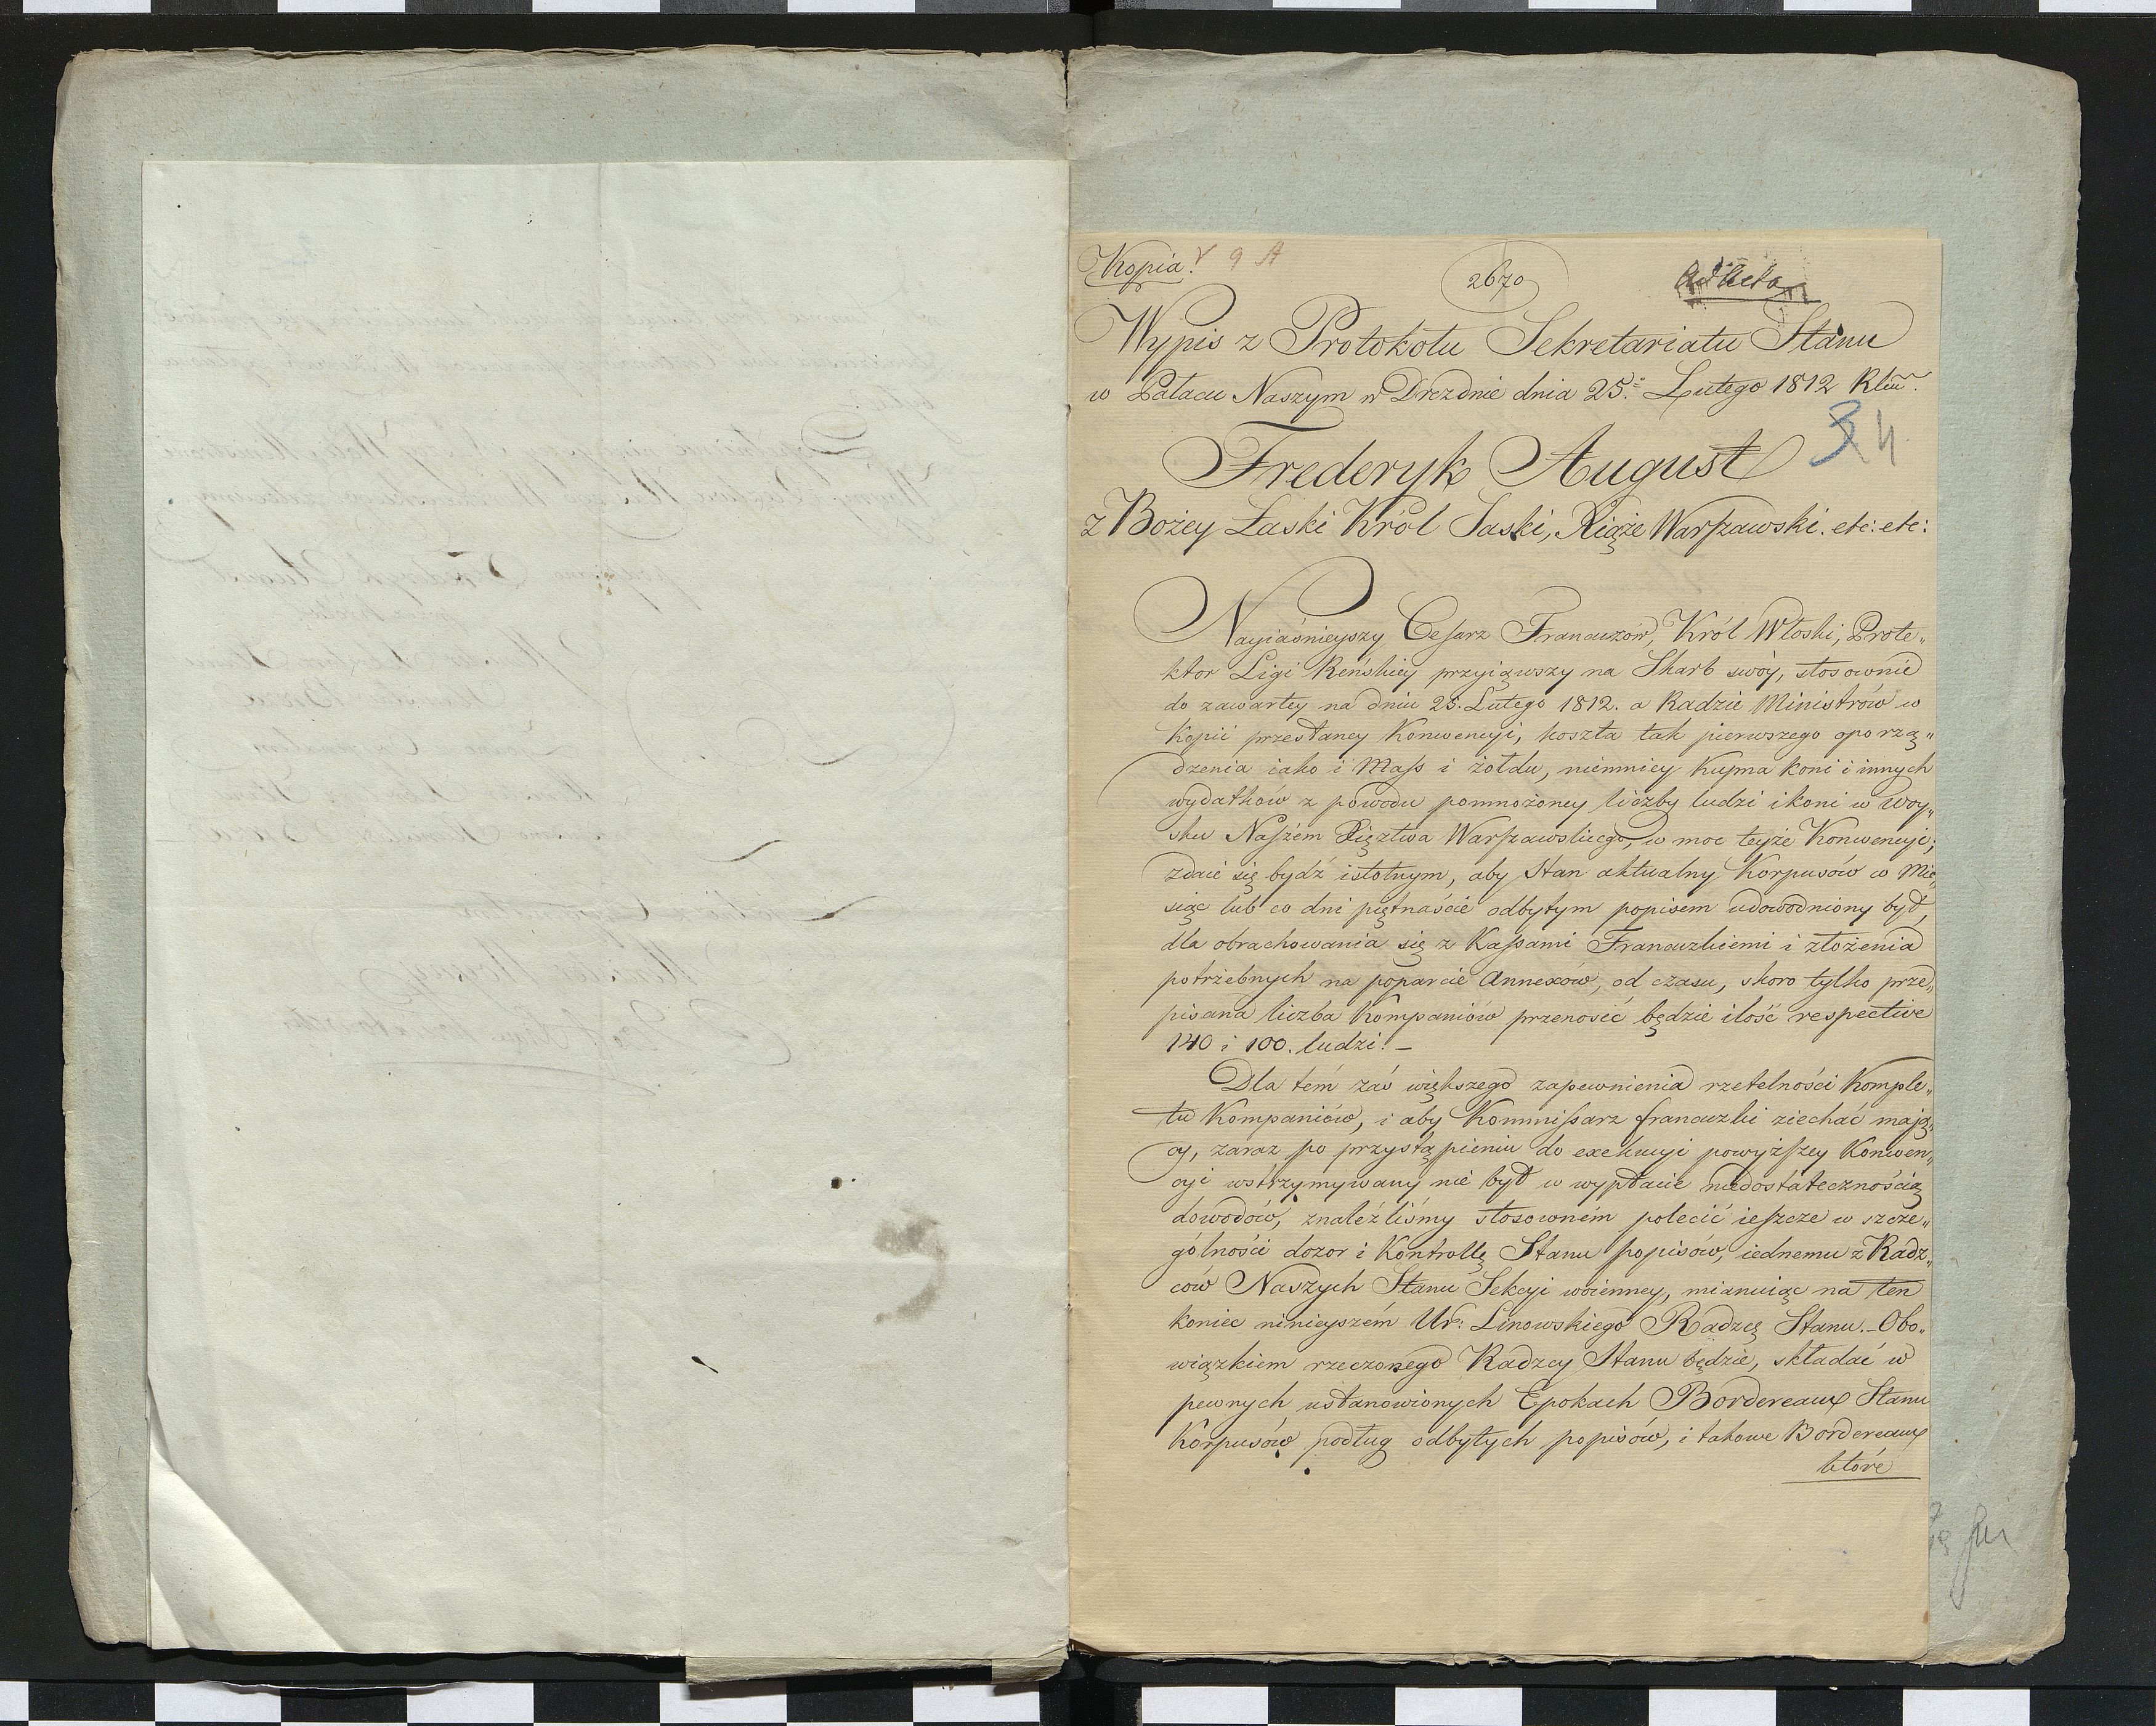 Kopia.
2670
Ad Acta
Wypis z Protokołu Sekretariatu Stanu
w Pałacu Naszym w Dreznie dnia 25. Lutego 1812 Rku.
Fryderyk August
z Bożey Łaski Król Saski, Xiąże Warszawski. etc: etc:
Nayiaśnieyszy Cesarz Francuzów, Król Włoski, Prote„
ktor Ligi Reńskiey przyiąwszy na Skarb swóy, stosownie
do zawartey na dniu 25. Lutego 1812. a Radzie Ministrów w
Kopii przesłaney Konwencyi, koszta tak pierwszego oporzą„
dzenia iako i Mass i żołdu, niemniey kupna koni i innych
wydatków z powodu pomnożoney liczby ludzi i koni w woy„
sku Naszém Xięztwa Warszawskiego, w moc teyże Konwencyi;
zdaie się bydź istotnym, aby Stan aktualny Korpusów co Mie„
siąc lub co dni piętnaście odbytym popisem udowodniony był,
dla obrachowania się z Kassami Francuzkiemi i złożenia
potrzebnych na poparcie Annexów, od czasu, skoro tylko prze„
pisana liczba Kompaniów przenosić będzie ilość respective
140 i 100. ludzi. –
Dla tém zaś większego zapewnienia rzetelności Komple„
tu Kompaniów, i aby Kommissarz francuzki ziechać mają„
cy, zaraz po przystąpieniu do exekucyi powyższey Konwen„
cyi wstrzymywany nie był w wypłacie niedostatecznością
dowodów, znaleźliśmy stosowném polecić ieszcze w szcze„
gólności dozor i Kontrollę Stanu popisów, iednemu z Radz„
ców Naszych Stanu Sekcyi woienney, mianuiąc na ten
koniec ninieyszém Ur: Linowskiego Radzcę Stanu. – Obo„
wiązkiem rzeczonego Radzcy Stanu będzie, składać w
pewnych ustanowionych Epokach Bordereaux Stanu
Korpusów podług odbytych popisów, i takowe Bordereaux
które